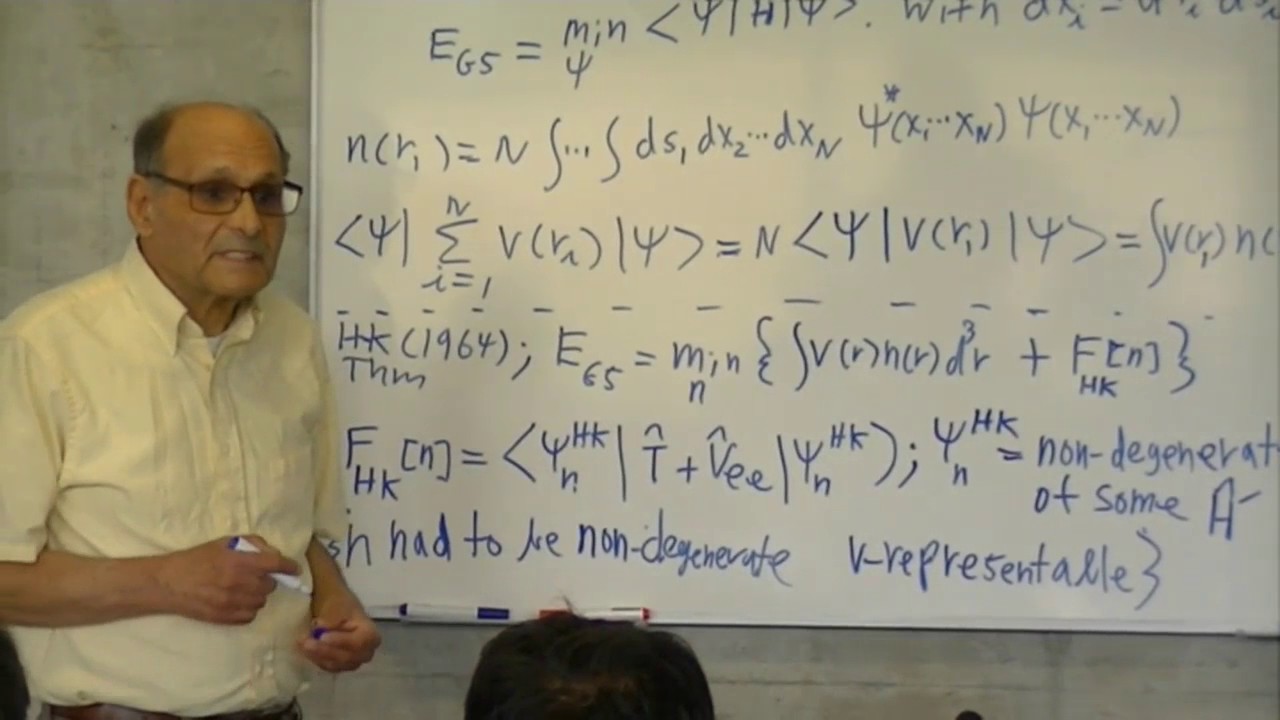 E_GS = min_Ψ <Ψ|H|Ψ>. With dx_i =
n(r_1) = N ∫...∫ ds_1 dx_2...dx_N Ψ*(x_1...x_N) Ψ(x_1...x_N)
<Ψ| Σ_{i=1}^N v(r_i) |Ψ> = N <Ψ|v(r_1)|Ψ> = ∫v(r_1) n(
HK (1964); E_GS = min_n {∫v(r)n(r)d³r + F_HK[n]}
Thm
F_HK[n] = <Ψ_n^HK | T̂ + V̂_ee | Ψ_n^HK>; Ψ_n^HK = non-degenerat
of some
n had to be non-degenerate v-representable}